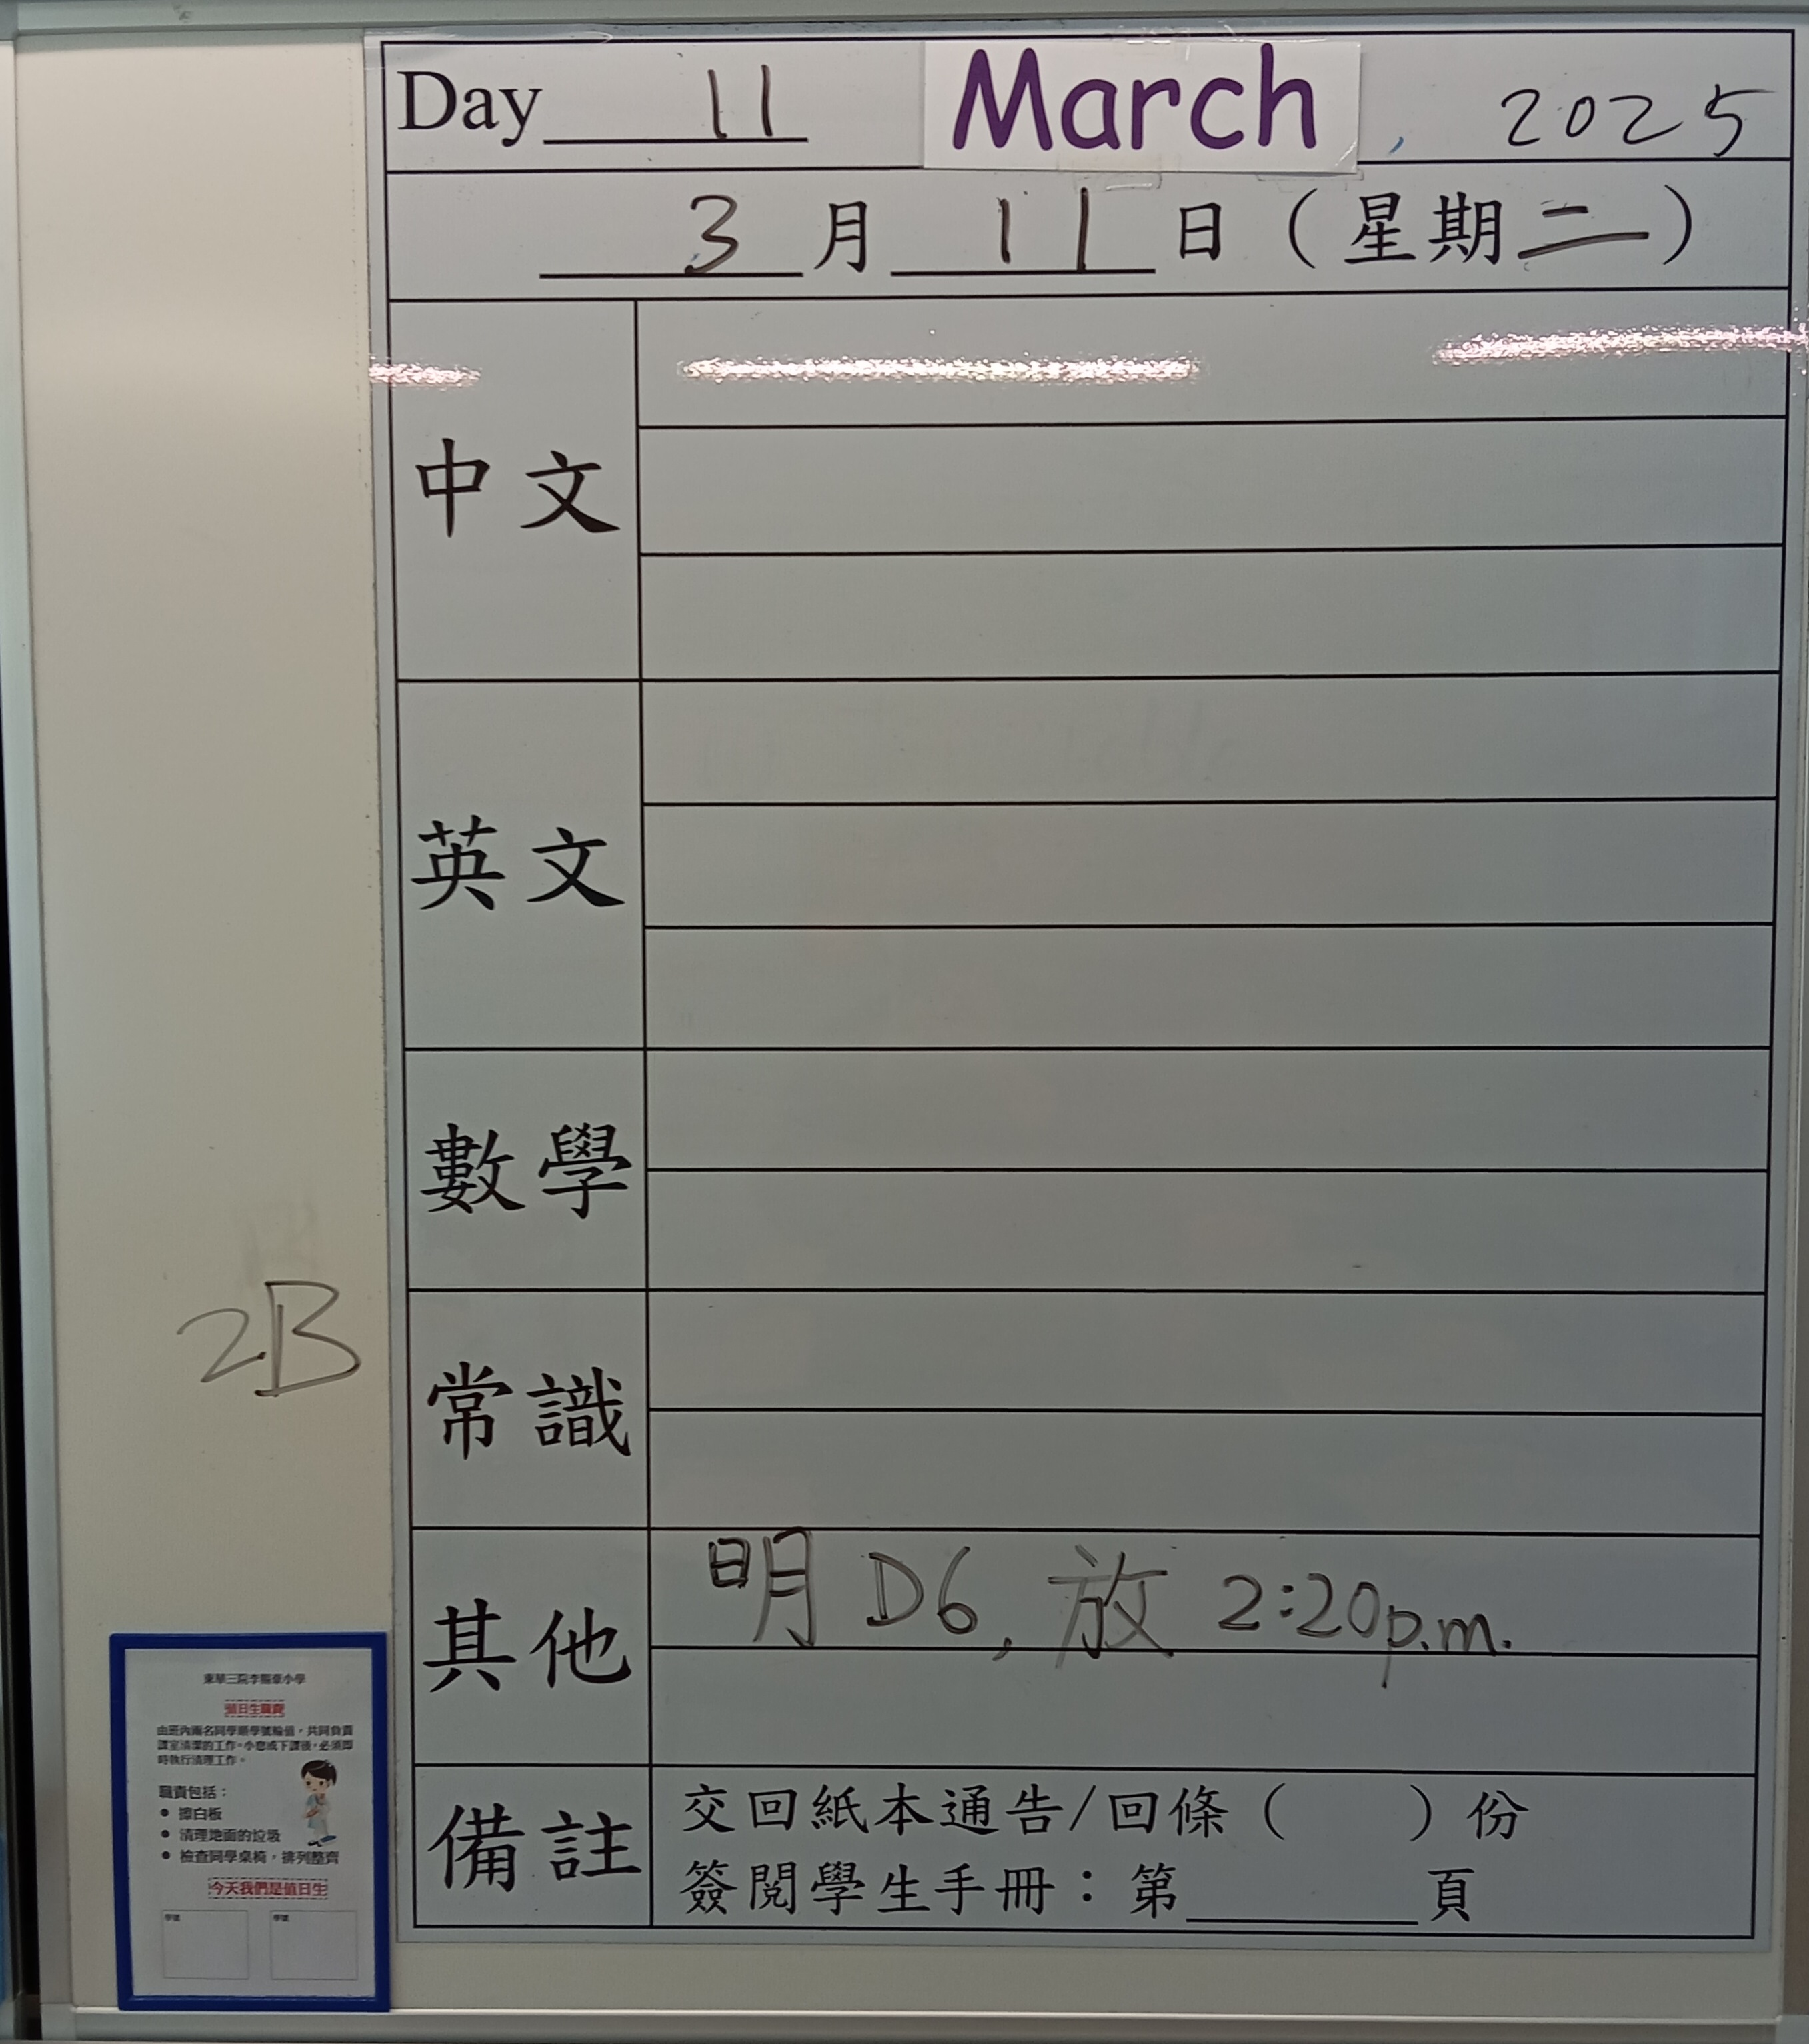 Day 11 March, 2025
3月11日（星期二）
中文
英文
數學
常識
2B
其他
明D6, 放 2:20p.m.
備註
交回紙本通告/回條（　　）份
簽閱學生手冊：第______頁
東華三院李賜豪小學
值日生職責
由班內兩名同學順學號輪值，共同負責
課室清潔的工作。小息或下課後，必須即
時執行清理工作。
職責包括：
● 擦白板
● 清理地面的垃圾
● 檢查同學桌椅，排列整齊
今天我們是值日生
學號 學號